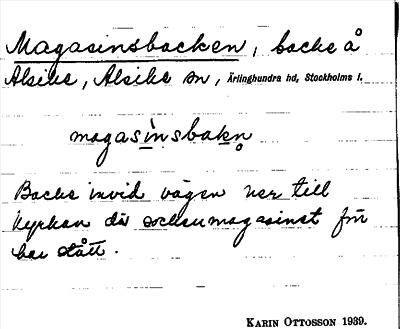 Magasinsbacken, backe å
Alsike, Alsike sn, Ärlinghundra hd, Stockholms l.
magasìnsbakn̥
Backe invid vägen ner till
kyrkan där sockenmagasinet för
har stått.
KARIN OTTOSSON 1939.